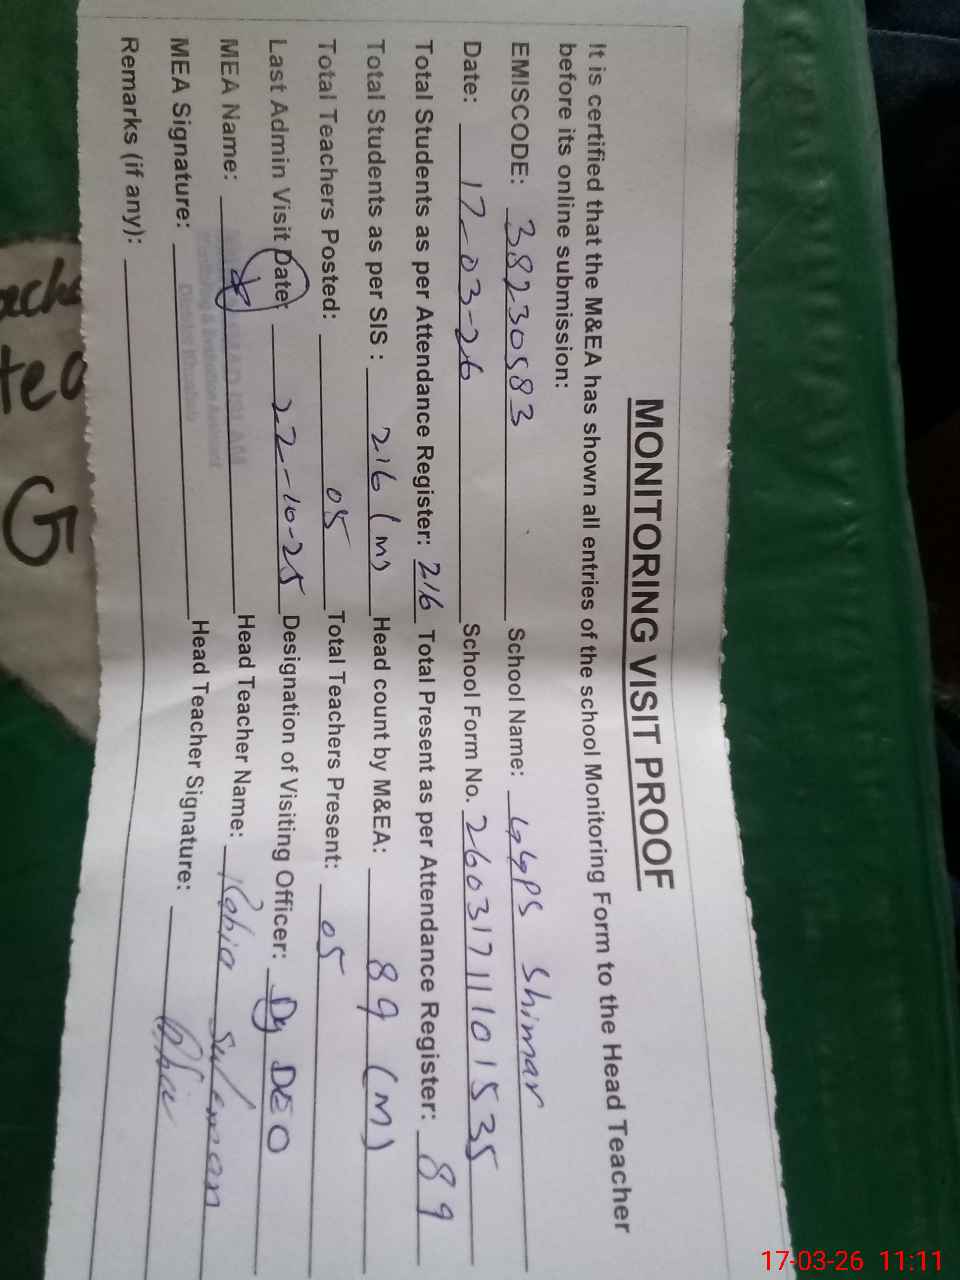 MONITORING VISIT PROOF
It is certified that the M&EA has shown all entries of the school Monitoring Form to the Head Teacher
before its online submission:
EMISCODE: 38230583 School Name: GGPS Shimar
Date: 17-03-26 School Form No. 26031711101535
Total Students as per Attendance Register: 216 Total Present as per Attendance Register: 89
Total Students as per SIS : 216 (m) Head count by M&EA: 89 (m)
Total Teachers Posted: 05 Total Teachers Present: 05
Last Admin Visit Date: 22-10-25 Designation of Visiting Officer: Dy DEO
MEA Name: Head Teacher Name: Rabia Suleman
MEA Signature: Head Teacher Signature: Rabia
Remarks (if any):
G
17-03-26 11:11